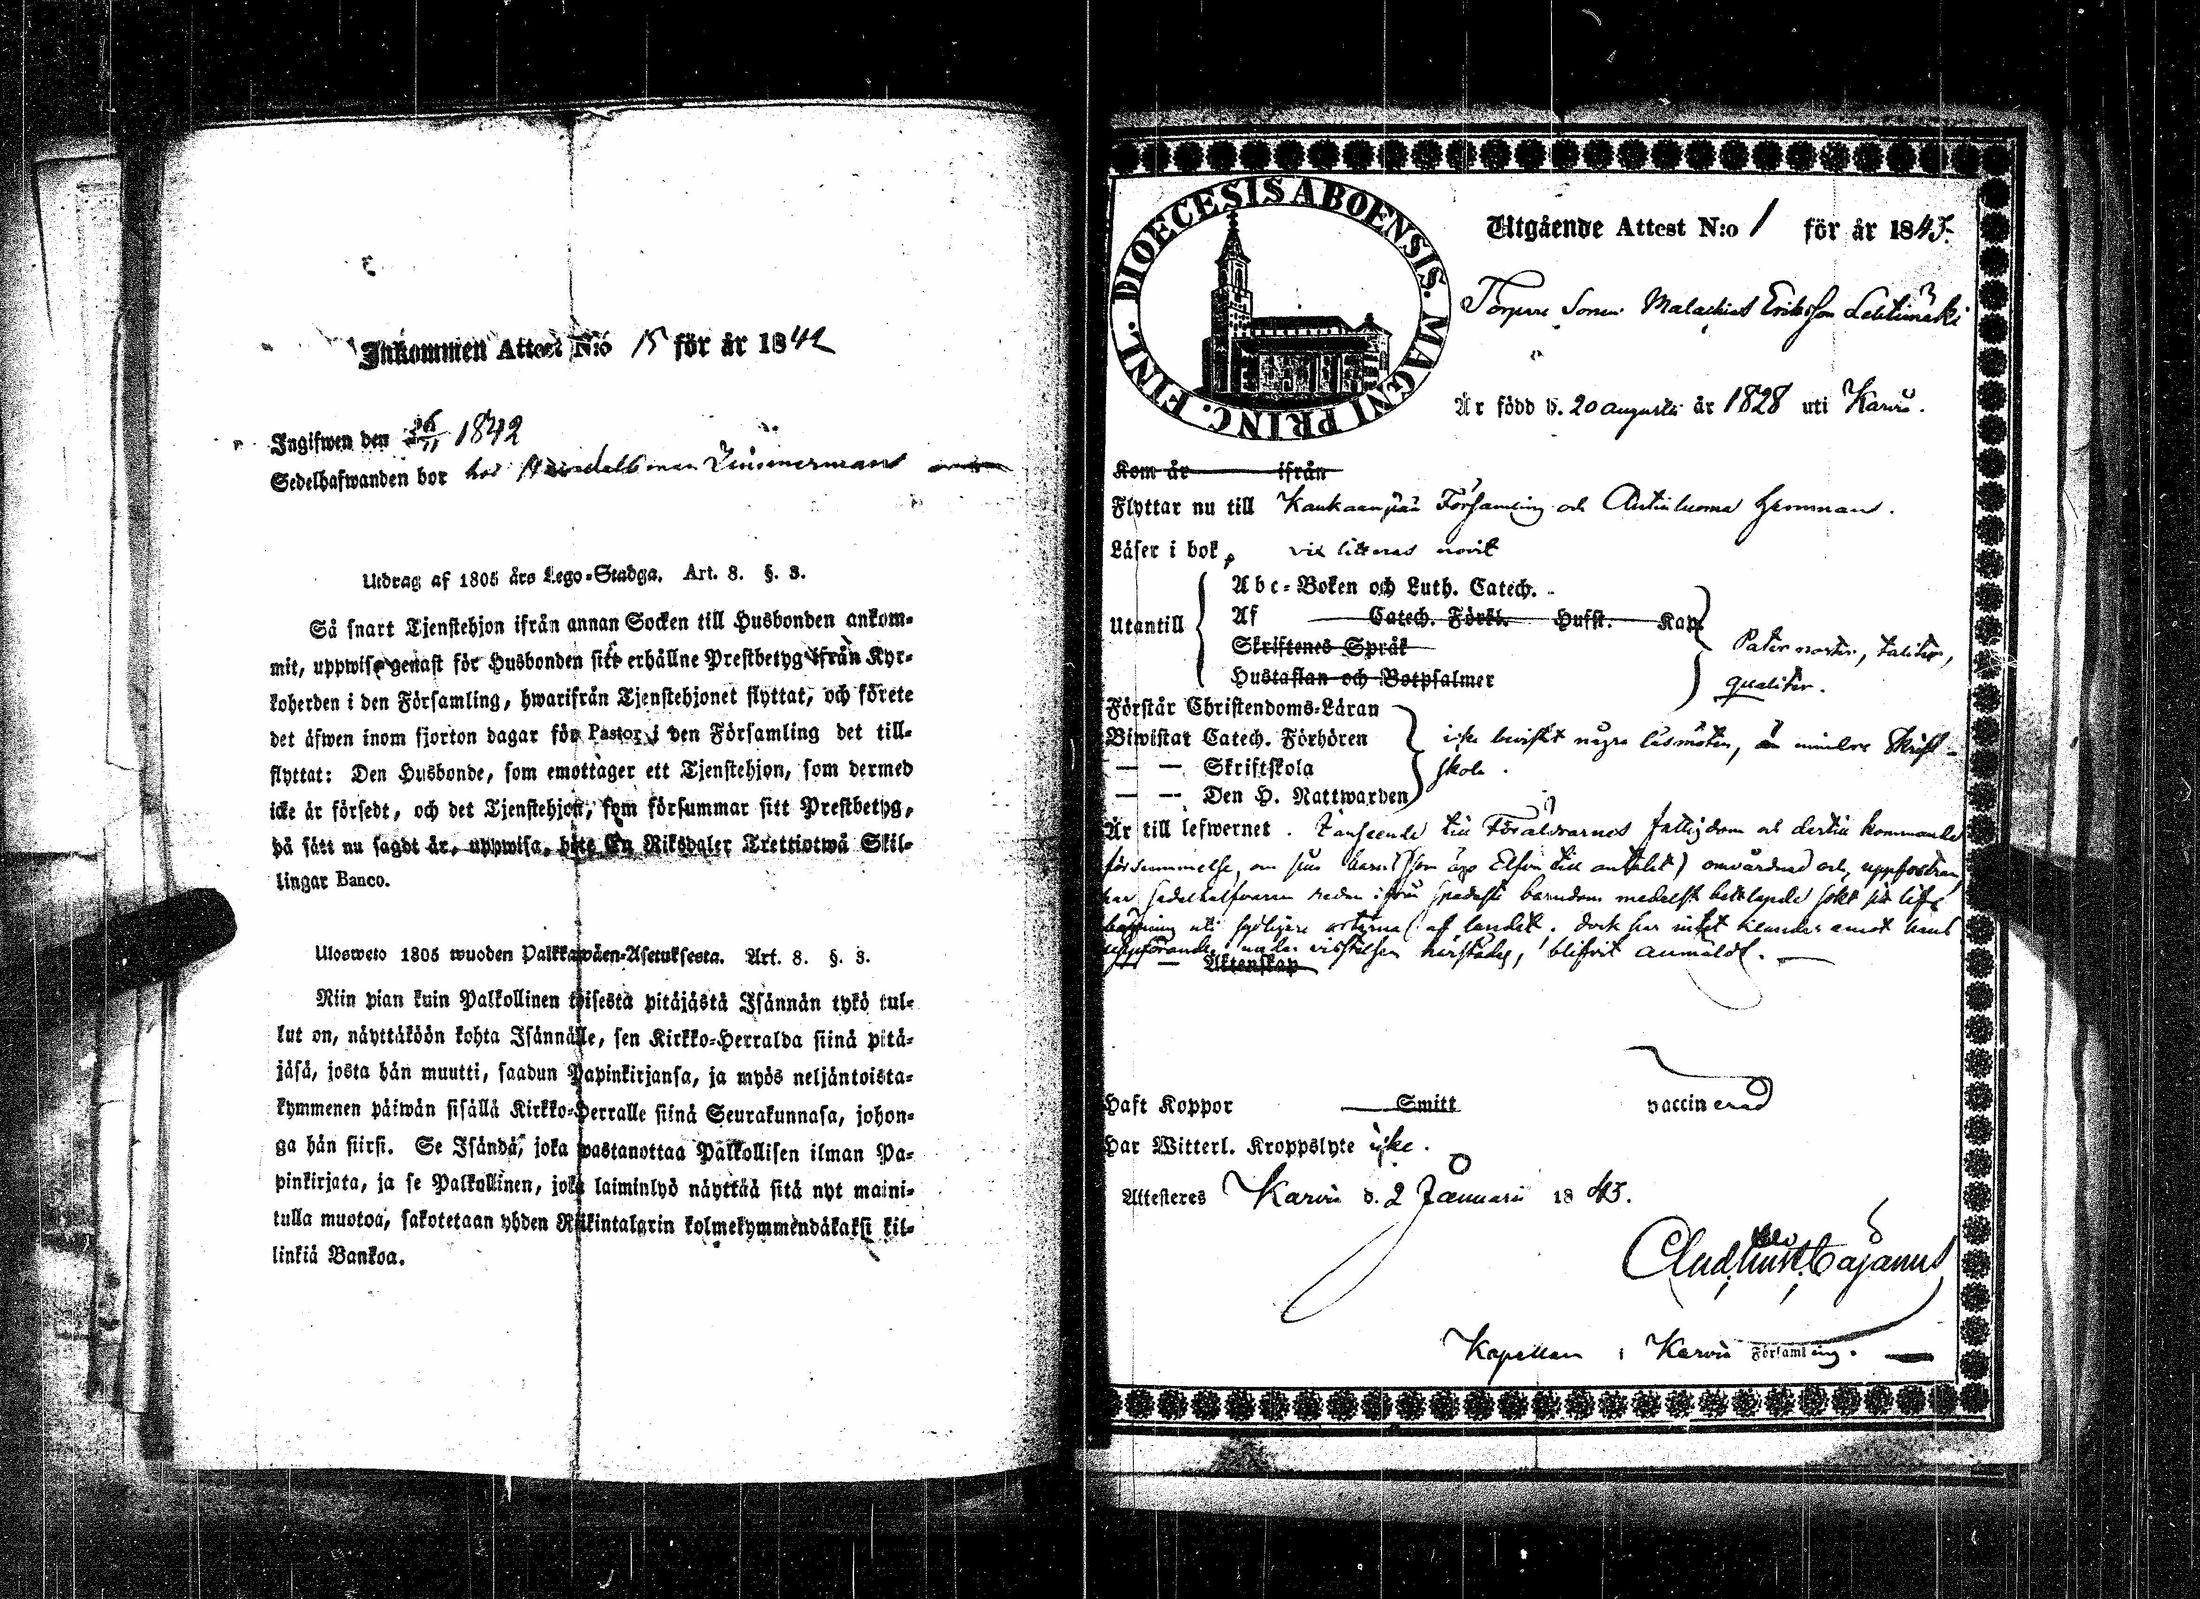 Inkommen Attest N:o 15 för år 1842
Ingifwen den 26/11 1842
Sedelhafwanden bor hos
Utdrag af 1805 års Lego-Stadga. Art. 8. §. 3.
Så snart Tjenstehjon ifrån annan Socken till Husbonden ankom-
mit, uppwise genast för Husbonden sitt erhållne Prestbetyg ifrån Kyr-
koherden i den Församling, hwarifrån Tjenstehjonet flyttat, och förete
det äfwen inom fjorton dagar för Pastor i den Församling det till-
flyttat: Den Husbonde, som emottager ett Tjenstehjon, som dermed
icke är försedt, och det Tjenstehjon, som försummar sitt Prestbetyg,
på sätt nu sagdt är, uppwisa, böte En Riksdaler Trettiotwå Skil-
lingar Banco.
Ulosweto 1805 wuoden Palkkawäen-Asetuksesta. Art. 8. §. 3.
Niin pian kuin Palkollinen toisesta pitäjästä Isännän tykö tul-
lut on, näyttäköön kohta Isännälle, sen Kirkko-Herralda siinä pitä-
jäsä, josta hän muutti, saadun Papinkirjansa, ja myös neljäntoista-
kymmenen päiwän sisällä Kirkko-Herralle siinä Seurakunnasa, johon-
ga hän siirsi. Se Isändä, joka wastanottaa Palkollisen ilman Pa-
pinkirjata, ja se Palkollinen, joka laiminlyö näyttää sitä nyt maini-
tulla muotoa, sakotetaan yhden Riikintalarin kolmekymmendäkaksi kil-
linkiä Bankoa.
DIOECESIS ABOENSIS. MAGNI PRINC. FINL.
Utgående Attest N:o 1 för år 1843.
Torpare Sonen Malachias Eriksson Lehtimäki
Är född d. 20 augusti år 1828 uti Karvia.
Kom år ifrån
Flyttar nu till Kankaanpää Församling och Antiluoma hemman.
Läser i bok, vix litteras novit
Abc-Boken och Luth. Catech.
Utantill Af Catech. Förkl. Husst. Kap.
Skriftenes Språk Pater noster, taliter,
Hustaflan och Botpsalmer qualiter.
Förstår Christendoms-Läran
Biwistat Catech. Förhören icke bevistat några läsmöten, än mindre Skrift-
— — Skriftskola skola.
— — Den H. Nattwarden
Är till lefwernet. I anseende till Föräldrarnes fattigdom och dertill kommande
försummelse, om sina barns (som äro Elfva till antalet) omvårdnad och uppfostran,
har sedelhafvaren redan ifrån spädaste barndom medelst bettlande sökt sin
uti sydligare orterna af landet. dock har intet klander emot hans
uppförande under vistelsen härstädes, blifvit anmäldt. —
— — Äktenskap
Haft Koppor Smitt vaccinerad
Har Witterl. Kroppslyte icke.
Attesteres Karvia d. 2 Januarii 1843.
Cajanus
Kapellan i Karvia Församling.